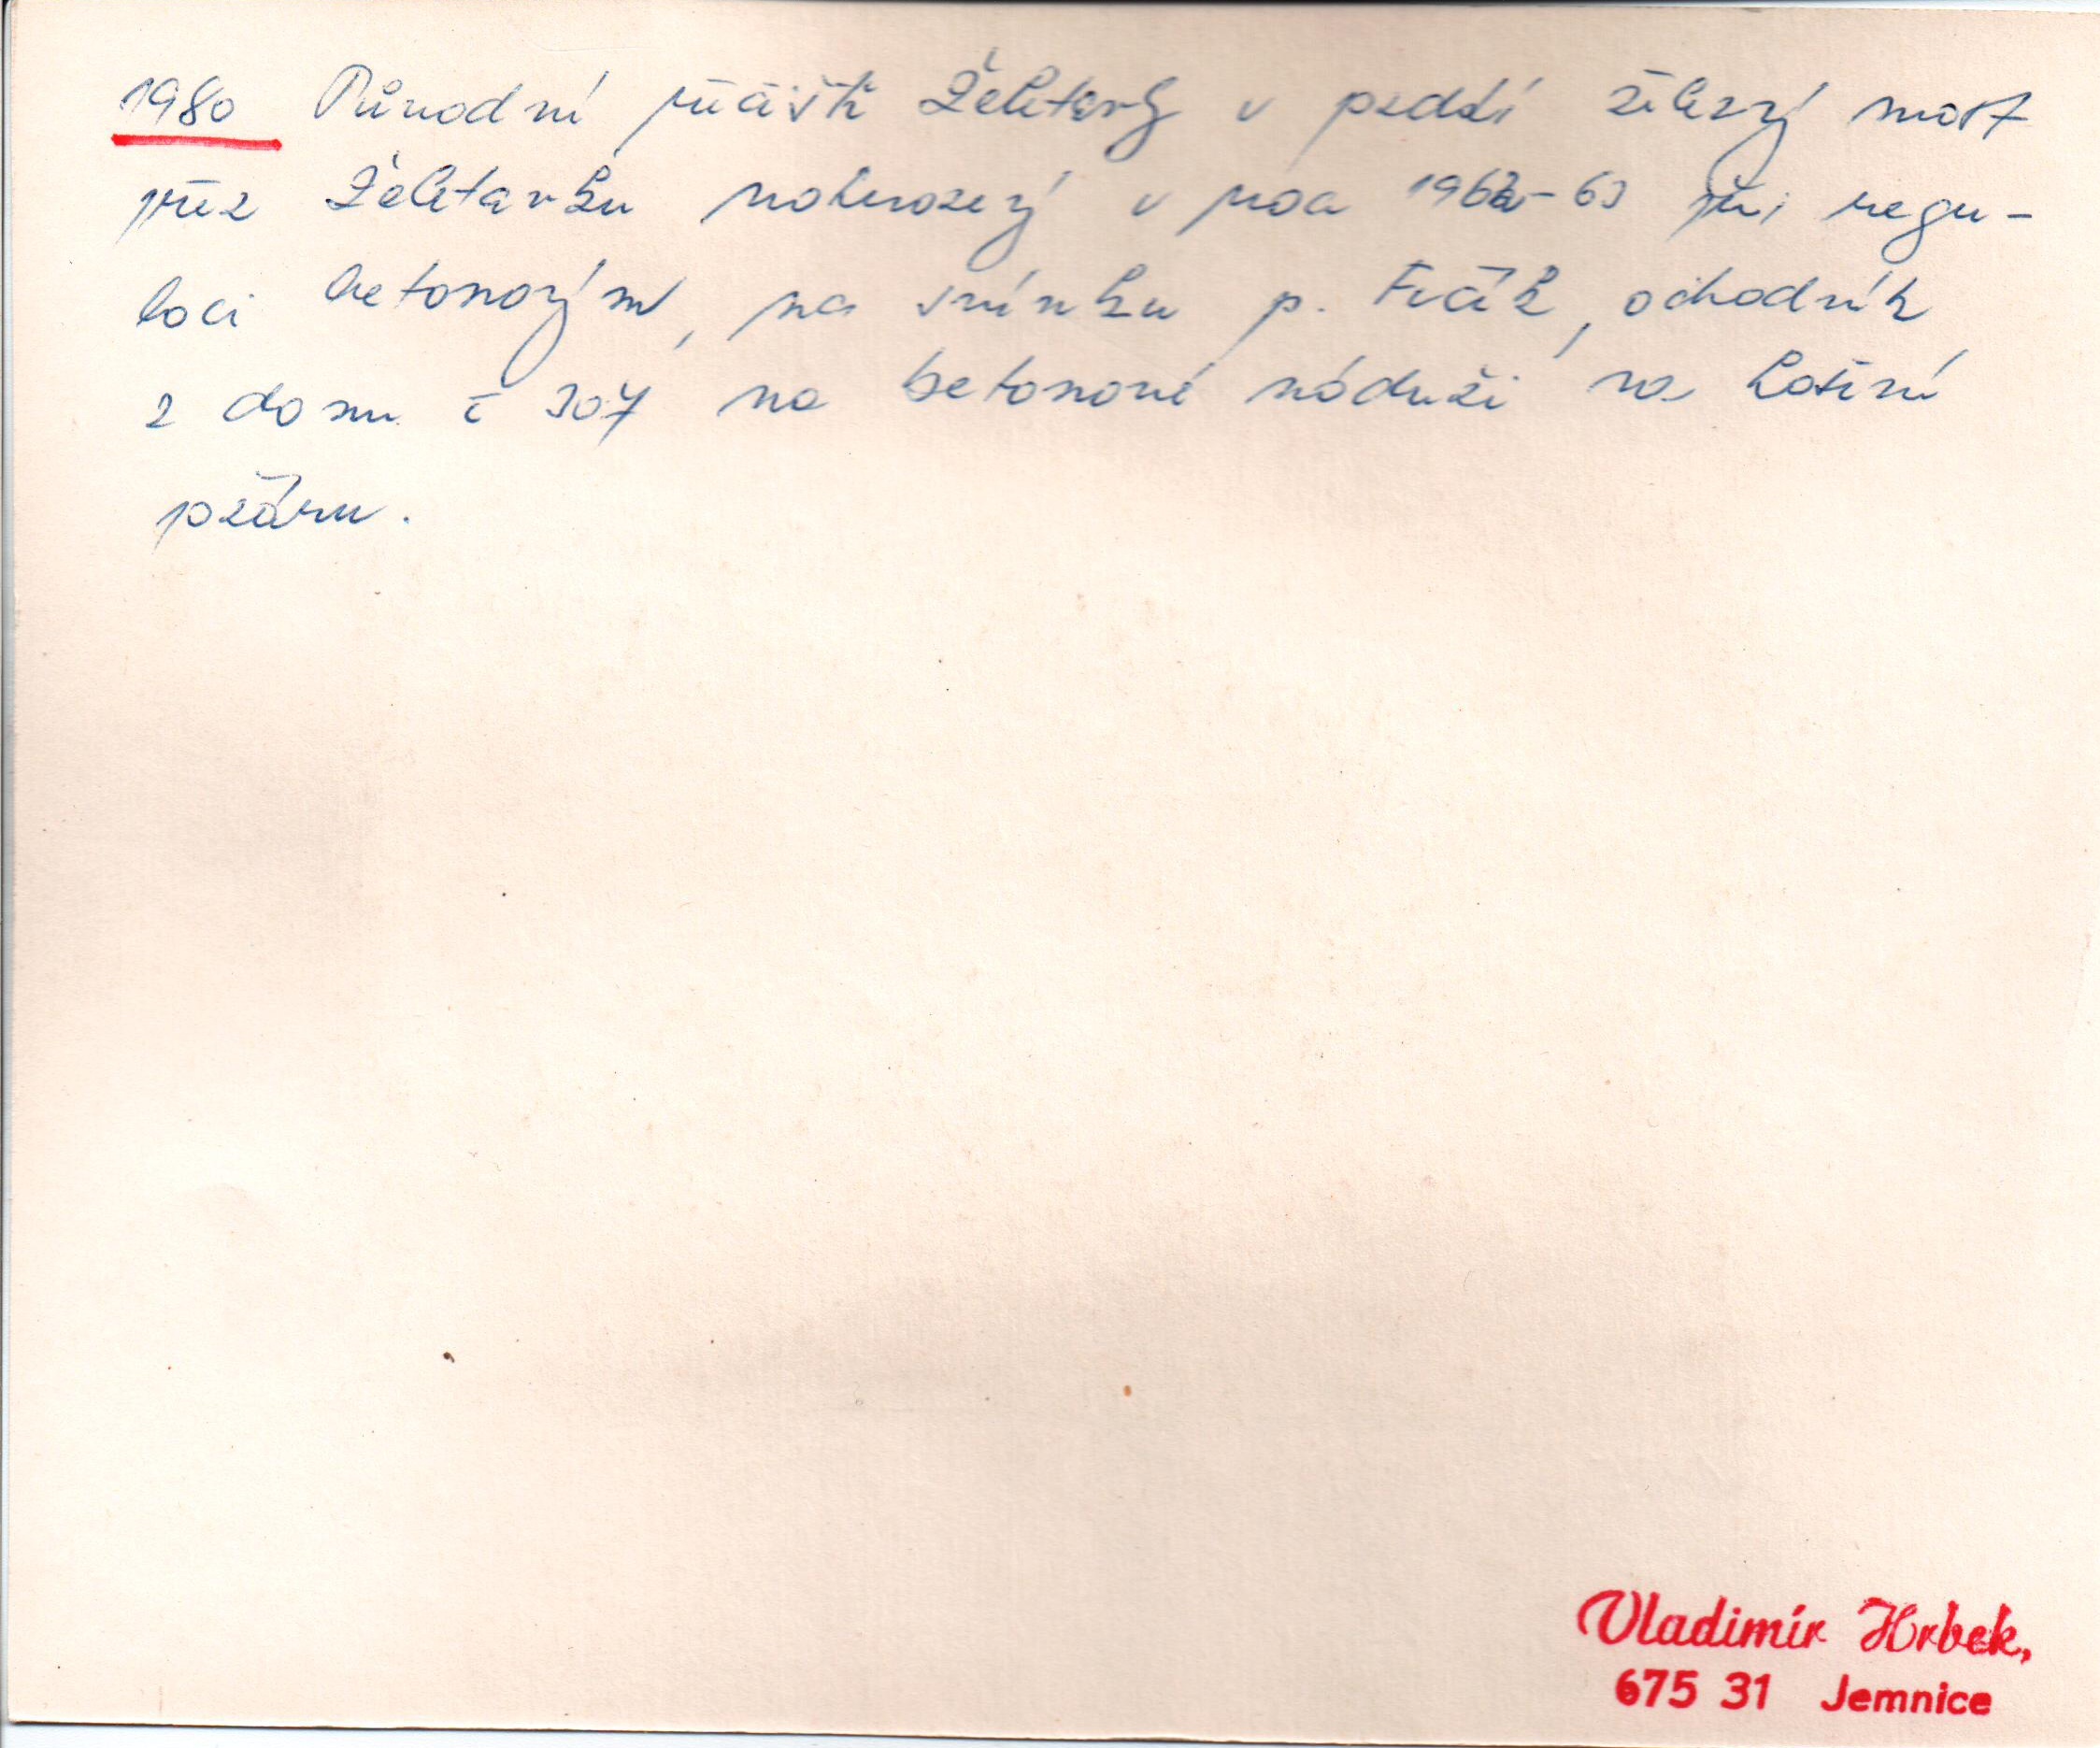 1980 Původní řečiště Želetavky v pozdí železný most
přez Želetavku nahrazený v roce 1962-63 při regu-
laci betonovým, na snímku p. Fučík, ochodník
z domu č 307 na betonové nádrži na hašení
požáru.
Vladimír Hrbek,
675 31 Jemnice